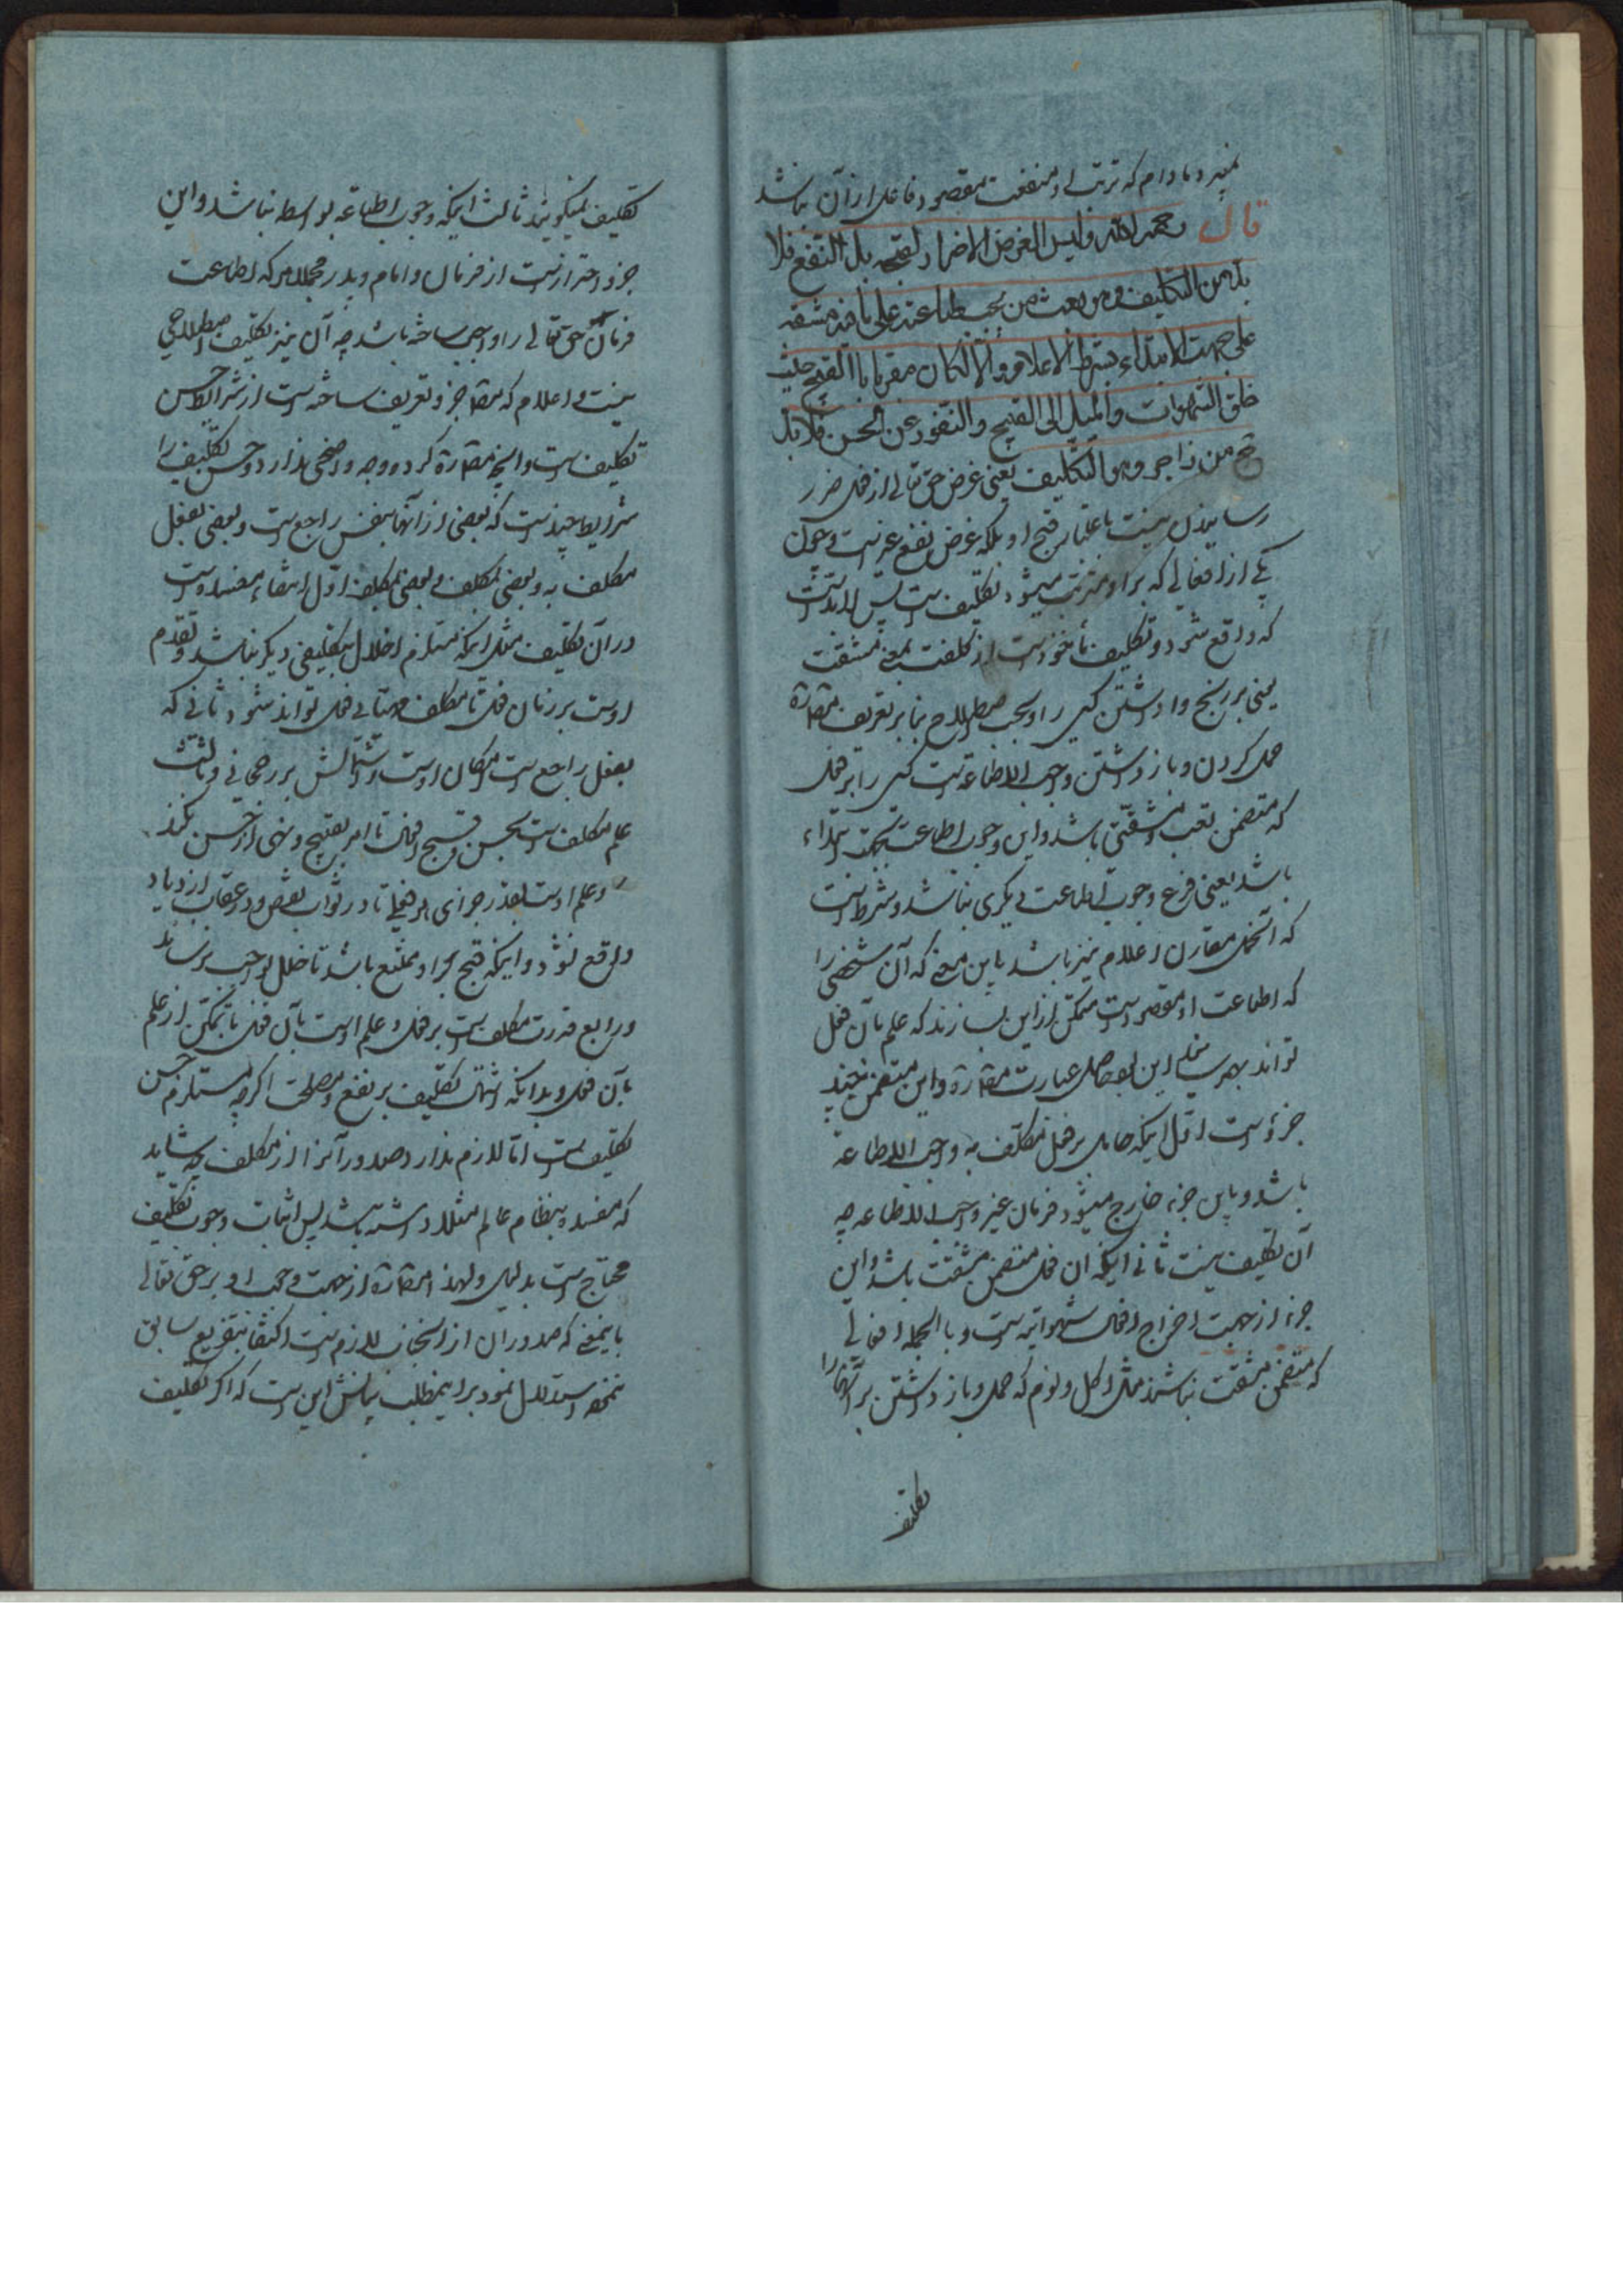 نمیرد مادام که ترتب او منفعت مقصود فاعل از آن نباشد
قال رحمه الله ولیس الغرض الاضرار لقبحه بل النفع فلا
بد من التکلیف وهو بعث من یجب طاعته علی ما فیه مشقة
علی جهت الابتداء بشرط الاعلام والا لکان مغریا بالقبیح حیث
خلق الشهوات والمیل الی القبیح والنفور عن الحسن فلا بد
ح من زاجر وهو التکلیف یعنی غرض حق تعالی از فعل ضرر
رسانیدن نیست باعتبار قبح او بلکه غرض نفع غیر است و چون
یکی از افعالی که بر او مترتب میشود تکلیف است پس لابد است
که واقع شود و تکلیف مأخوذ است از کلفت بمعنی مشقت
یعنی بر رنج وا داشتن کسی را و بحسب اصطلاح بنا بر تعریف مص ره
حمل کردن و باز داشتن واجب الاطاعه است کسی را بر فعلی
که متضمن تعب و مشقتی باشد و این وجوب اطاعت بجهت ابتداء
باشد یعنی فرع وجوب اطاعت دیگری نباشد و شرط است
که آنحمل مقارن اعلام نیز باشد باین معنی که آن شخص را
که اطاعت او مقصود است متمکن ازاین بسازند که علم بآن فعل
تواند بهم رساند این بود حاصل عبارت مص ره و این متضمن چند
جزء است اول اینکه حامل بر فعل مکلف به واجب الاطاعه
باشد و باین جزء خارج میشود فرمان غیر واجب الاطاعه چه
آن تکلیف نیست ثانی اینکه ان فعل متضمن مشقت باشد و این
جزء از جهت اخراج افعال شهوانیه است و بالجمله افعالی
که متضمن مشقت نباشند مثل اکل و نوم که حمل و باز داشتن بر آنها را
تکلیف
تکلیف نمیگویند ثالث اینکه وجوب اطاعه بواسطه نباشد و این
جزو احتراز است از فرمان و امام و پدر و مجملا هر که اطاعت
فرمانش حق تعالی را واجب ساخته باشد چه آن نیز تکلیف اصطلاحی
نیست و اعلام که مص جزو تعریف ساخته است از شرایط حسن
تکلیف است و آنچه مص ره کرده وجه واضحی ندارد و حسن تکلیف را
شرایط چند است که بعضی از آنها بنفس راجع است و بعضی بفعل
مکلف به و بعضی بمکلف و بعضی بمکلف اول انتفاء مفسده است
در آن تکلیف مثل اینکه مستلزم اخلال بتکلیفی دیگر نباشد و تقدم
اوست بر زمان فعل تا مکلف مهیای فعل تواند شد و ثانی که
بفعل راجع است امکان اوست و اشتمالش بر رجحانی و ثالث
علم مکلف است بحسن و قبح افعال تا امر بقبیح و نهی از حسن نکند
و علم اوست بقدر جزای هر فعلی تا در ثواب نقص و در عقاب ازدیاد
واقع نشود و اینکه قبح بر او ممتنع باشد تا خلل بواجب نرساند
و رابع قدرت مکلف است بر فعل و علم اوست بآن فعل یا تمکن از علم
بآن فعل و بدانکه اشتمال تکلیف بر نفع و مصلحت اگرچه مستلزم حسن
تکلیف است اما لازم ندارد صدور آنرا از مکلف چه شاید
که مفسده بنظام عالم مثلا داشته باشد پس اثبات وجوب تکلیف
محتاج است بدلیل و لهذا مص ره از جهت وجوب او بر حق تعالی
باینمعنی که صدور ان از انجناب لازم است اکتفا بتفریع سابق
ننموده استدلال نمود بر اینمطلب بیانش این است که اگر تکلیف